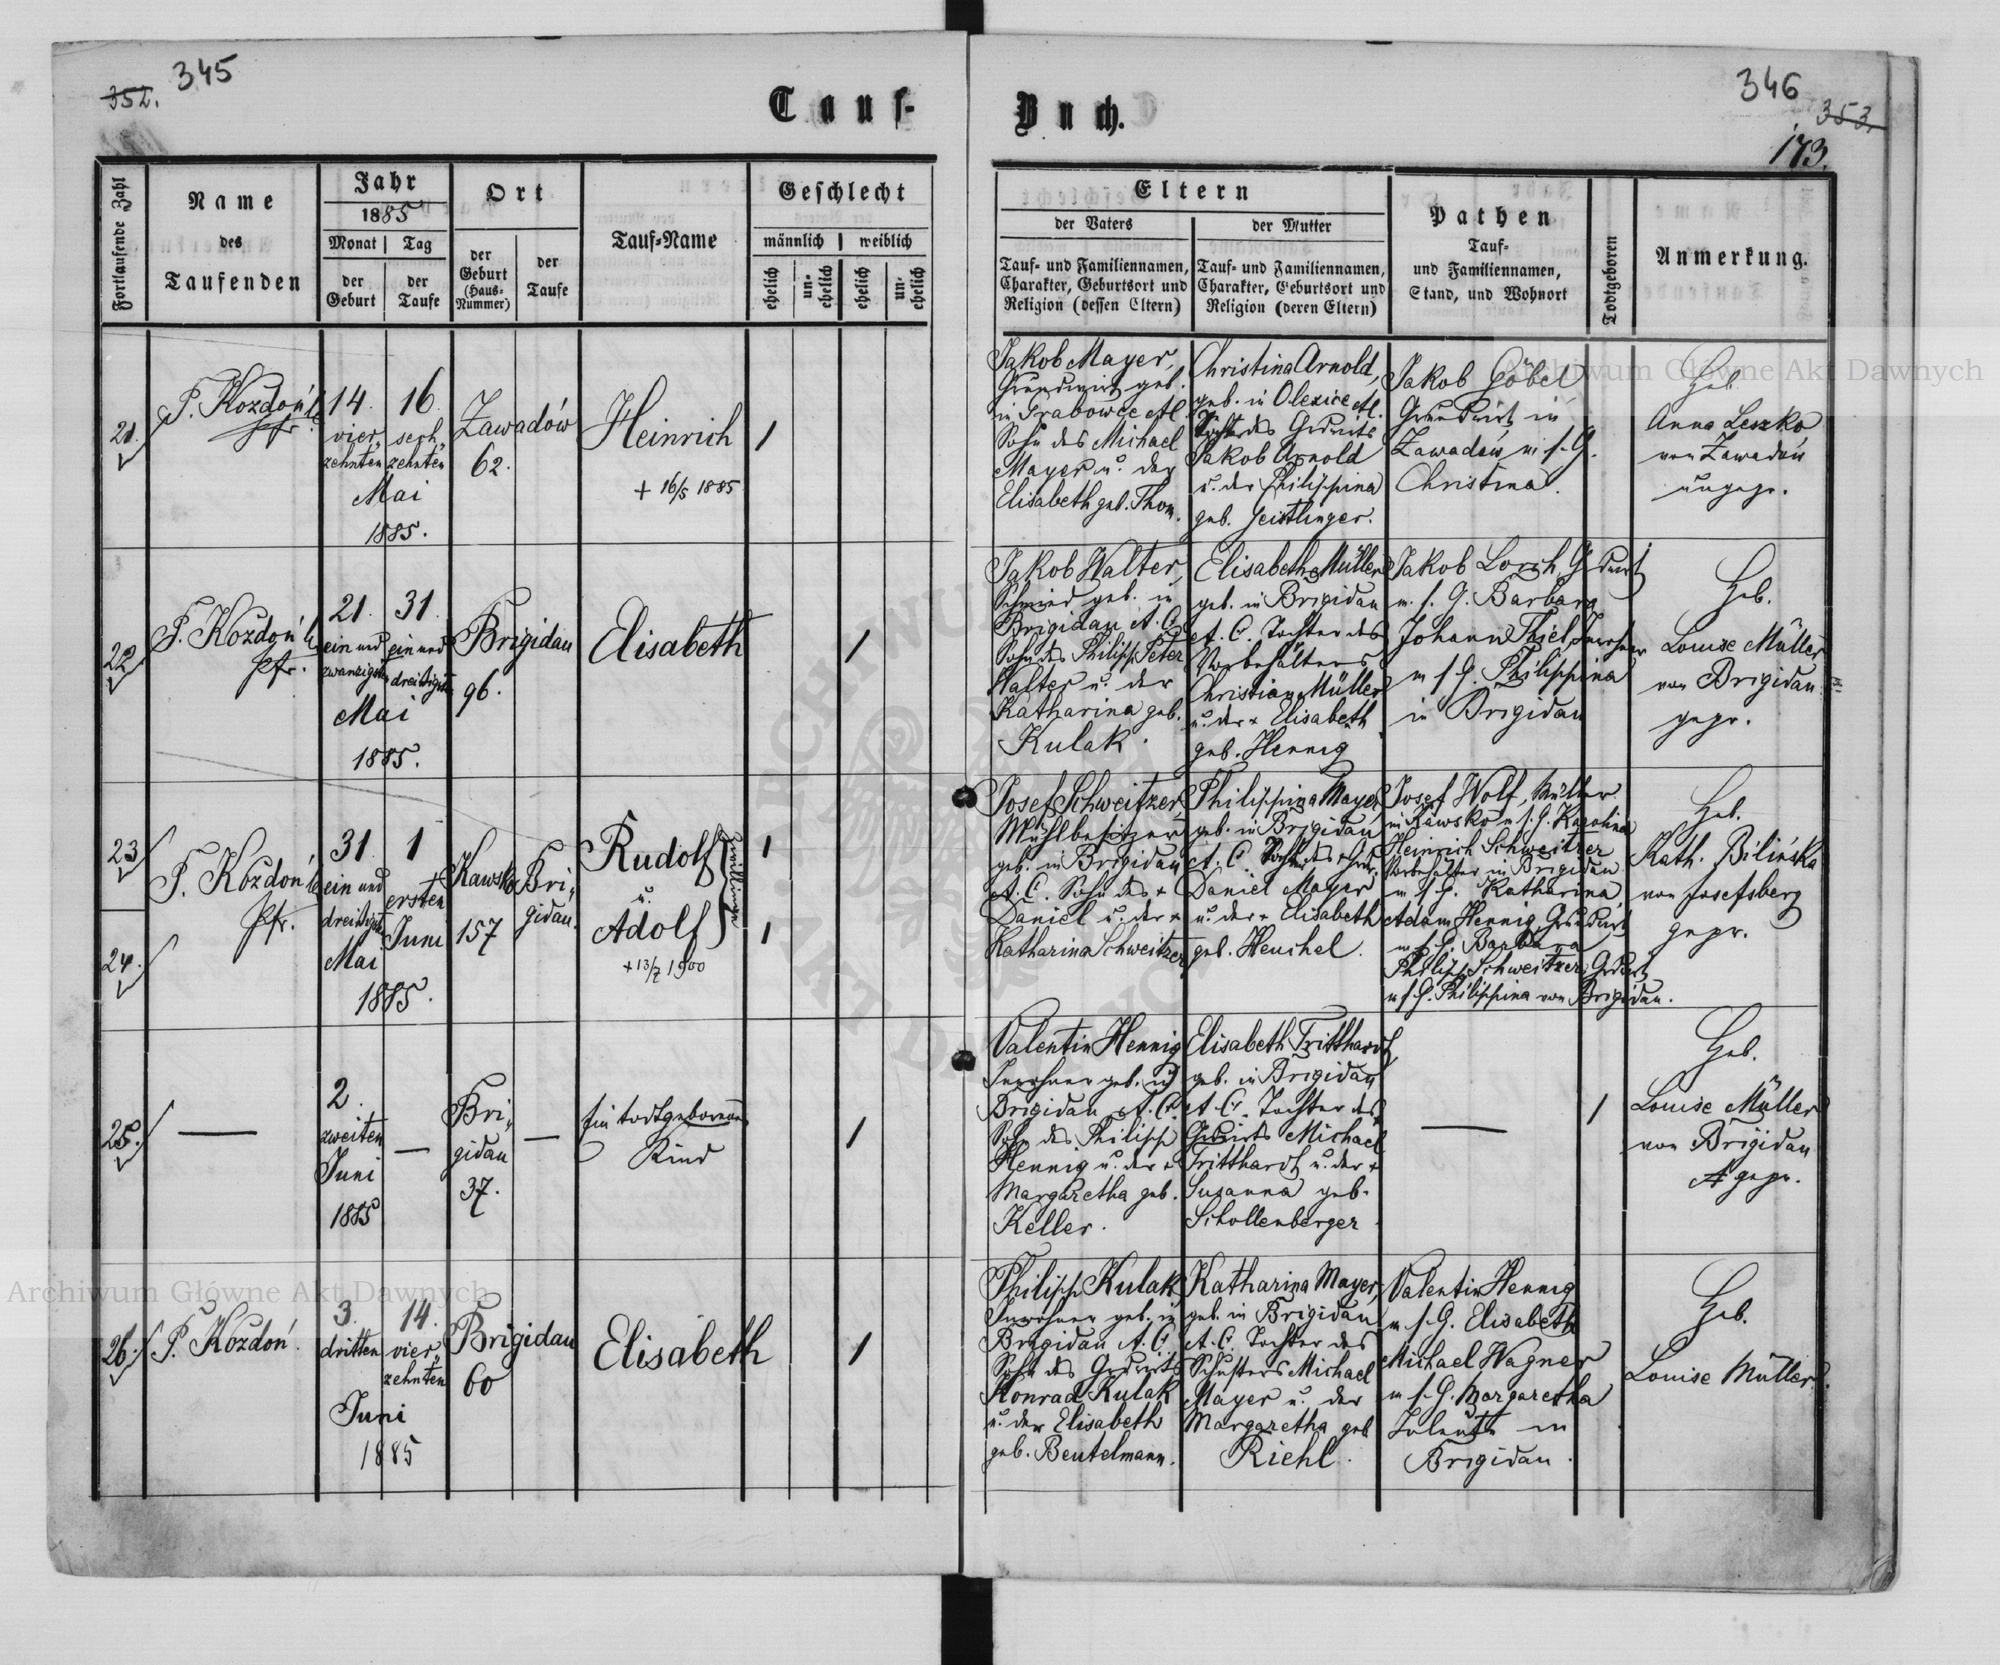 345
352.
Tauf-
Buch.
346
353.
173.
Fortlaufende Zahl
Name
des
Taufenden
Jahr
1885
Monat
Tag
der
Geburt
der
Taufe
Ort
der
Geburt
(Haus-
Nummer)
der
Taufe
Tauf-Name
Geschlecht
männlich
weiblich
ehelich
un-
ehelich
ehelich
un-
ehelich
Eltern
der Vaters
der Mutter
Tauf- und Familiennamen,
Charakter, Geburtsort und
Religion (dessen Eltern)
Tauf- und Familiennamen,
Charakter, Geburtsort und
Religion (deren Eltern)
Pathen
Tauf-
und Familiennamen,
Stand, und Wohnort
Todtgeboren
Anmerkung.
21.
P. Kozdoń
Pfr.
14.
vier-
zehnten
16.
sech-
zehnten
Mai
1885.
Zawadów
62.
Heinrich
+ 16/5 1885
1
Jakob Mayer,
Grundwirt geb.
in Grabowce
Sohn des Michael
Mayer u. der
Elisabeth geb. Thom.
Christina Arnold,
geb. in Olexice
Tochter des Grdwirts
Jakob Arnold
u. der Philippina
geb. Geistlinger.
Jakob Göbel
Grundwirt in
Zawadów m. s. G.
Christina.
Heb.
Anna Leszko
von Zawadów
ungepr.
22.
P. Kozdoń
Pfr.
21.
ein und
zwanzigsten
31.
ein und
dreißigsten
Mai
1885.
Brigidau
96.
Elisabeth
1
Jakob Walter,
Schmied geb. in
Brigidau A. C.
Sohn des Philipp Peter
Walter u. der
Katharina geb.
Kulak.
Elisabeth Müller
geb. in Brigidau
A. C. Tochter des
Vorbehälters
Christian Müller
u. der + Elisabeth
geb. Hennig
Jakob Lorch, Grdwirt
m. s. G. Barbara
Johann Thiel, Inwohner
m. s. G. Philippina
in Brigidau
Heb.
Louise Müller
von Brigidau
gepr.
23
24.
P. Kozdoń
Pfr.
31
ein und
dreißigsten
Mai
1
ersten
Juni
1885.
Kawsko
157
Bri-
gidau.
Rudolf
u.
Adolf
Zwillinge
+ 13/7 1900
1
1
Josef Schweitzer,
Mühlbesitzer
geb. in Brigidau
A. C. Sohn des +
Daniel u. der +
Katharina Schweitzer
Philippina Mayer,
geb. in Brigidau
A. C. Tochter des
Daniel Mayer
u. der + Elisabeth
geb. Heuchel.
Josef Wolf, Müller
in Kawsko m. s. G. Karolina
Heinrich Schweitzer
Vorbehälter in Brigidau
m. s. G. Katharina,
Adam Hennig, Grundwirt
m. s. G. Barbara
Philipp Schweitzer, Grdwirt
m. s. G. Philippina von Brigidau.
Heb.
Kath. Bilińska
von Josefsberg
gepr.
25.
—
2.
zweiten
Juni
1885
—
Bri-
gidau
37.
—
Ein todtgeborenes
Kind
1
Valentin Hennig
Inwohner geb. in
Brigidau A. C.
Sohn des Philipp
Hennig u. der +
Margaretha geb.
Keller.
Elisabeth Tritthardt
geb. in Brigidau
A. C. Tochter des
Grdwirts Michael
Tritthardt u. der +
Susanna geb.
Schollenberger
—
1
Heb.
Louise Müller
von Brigidau
gepr.
26.
P. Kozdoń.
3.
dritten
14.
vier-
zehnten
Juni
1885
Brigidau
60
Elisabeth
1
Philipp Kulak
Inwohner geb. in
Brigidau A. C.
Sohn des Grdwirts
Konrad Kulak
u. der Elisabeth
geb. Beutelmann.
Katharina Mayer,
geb. in Brigidau
A. C. Tochter des
Schusters Michael
Mayer u. der
Margaretha geb
Riehl.
Valentin Hennig
m. s. G. Elisabeth
Michael Wagner
m. s. G. Margaretha
in
Brigidau.
Heb.
Louise Müller.
Archiwum Główne Akt Dawnych
Archiwum Główne Akt Dawnych